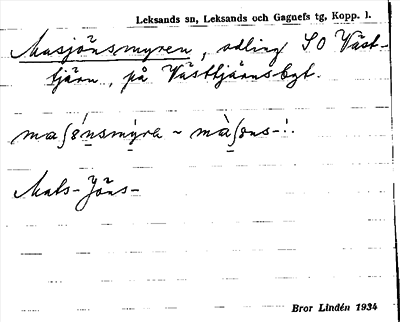 Leksands sn, Leksands och Gagnefs tg, Kopp. l.
Masjönsmyren, odling SO Väst-
tjärn, på Västtjärnsbyt.
Mats-Jöns-
Bror Lindén 1934